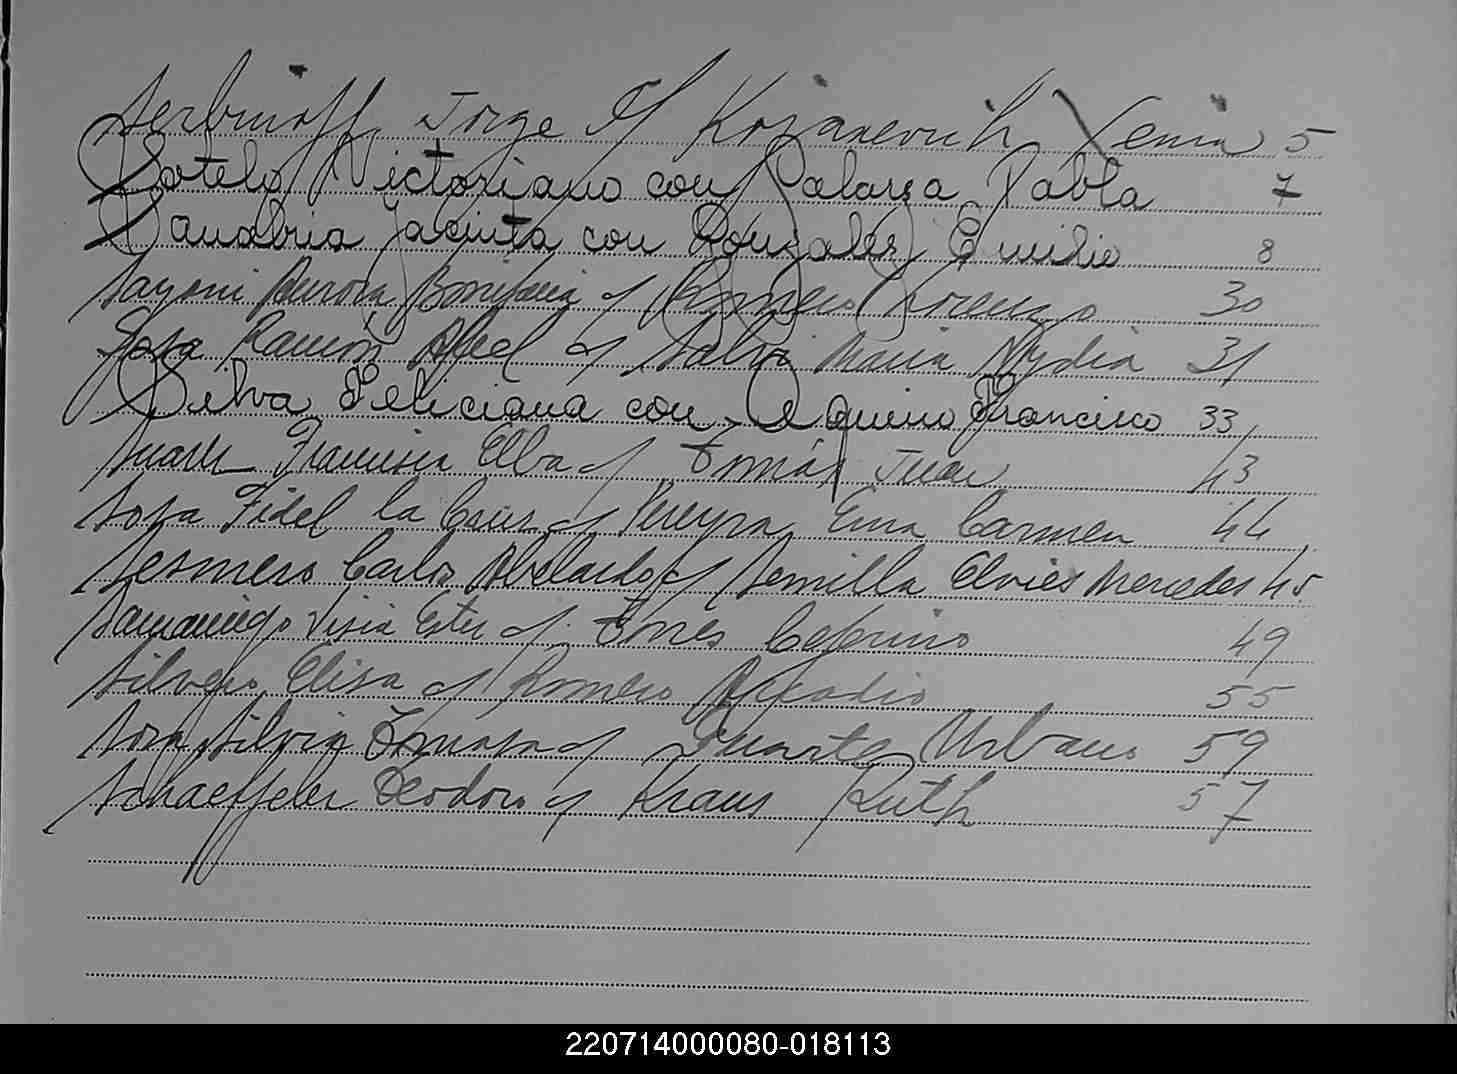 Serbinoff Jorge c/ Kozanevich Xenia 5
Sotelo Victoriano con Palarza Pabla 7
Sanabria Jacinta con Gonzales Emilio 8
Sayoni Aurora Bonifacia c/ Romero Lorenzo 30
Sosa Ramón Abel c/ Maria Nydia 31
Silva Feliciana con Aquino Francisco 33
Francisca Elba c/ Tomás Juan 43
Sosa Fidel la Cruz c/ Pereyra Ema Carmen 44
Sesmero Carlos Abelardo c/ Semilla Elvies Mercedes 45
Samaniego Ester c/ Torres Ceferino 49
Silvero Elisa c/ Romero Arcadio 55
Sosa Silvia Tomasa c/ Duarte Urbano 59
Schaeffeler Deodoro c/ Kraus Ruth 57
220714000080-018113